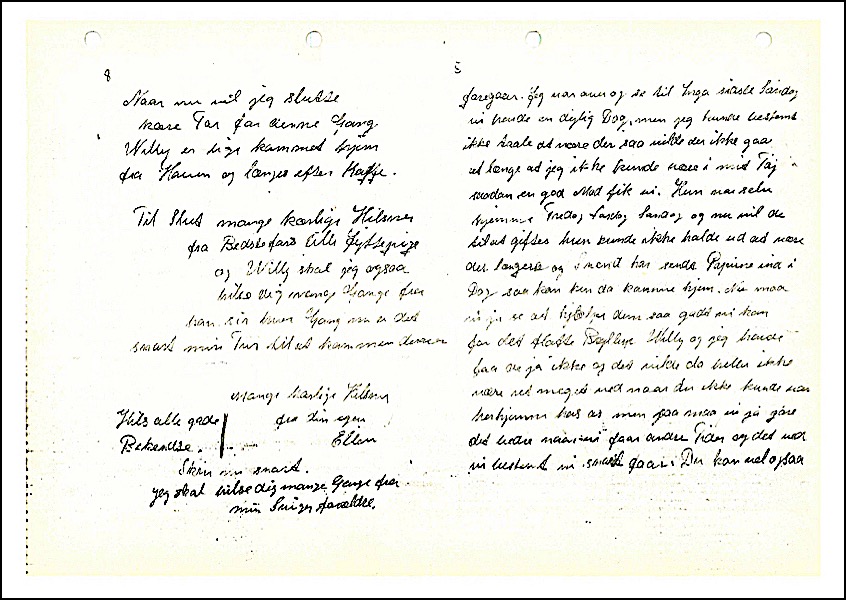 8
Naar nu vil jeg slutte
kære Far for denne Gang
Willy er lige kommet hjem
fra Haven og længes efter Kaffe.
Til Slut mange kærlige Hilsner
fra Bedstefars lille
og Willy skal jeg ogsaa
hilse dig mange Gange fra
han siger hver Gang nu er det
snart min Tur til at komme
Mange kærlige Hilsner
Hils alle gode
fra din egen
Bekendte.
Ellen
Skriv nu snart.
jeg skal hilse dig mange Gange fra
min Svigerforældre.
5
foregaar. Jeg var ovre og se til Inga sidste Søndag
vi havde en dejlig Dag, men jeg kunde bestemt
ikke taale at være der saa vilde der ikke gaa
ret længe at jeg ikke kunde være i mit Tøj
saadan en god Mad fik vi. Hun var selv
hjemme Fredag Lørdag Søndag og nu vil de
til at giftes hun kunde ikke holde ud at være
der længere og Svend har sendt Papirene ind i
Dag saa kan hun da komme hjem. Nu maa
vi jo se at hjælpe dem saa godt vi kan
for det Bryllup Willy og jeg havde
faa de jo ikke og det vilde da heller ikke
være ret meget ved naar du ikke kunde være
herhjemme hos os men saa maa vi jo gøre
det bedre naar vi faar andre Tider og det ved
vi bestemt vi snart faar. Du kan vel ogsaa